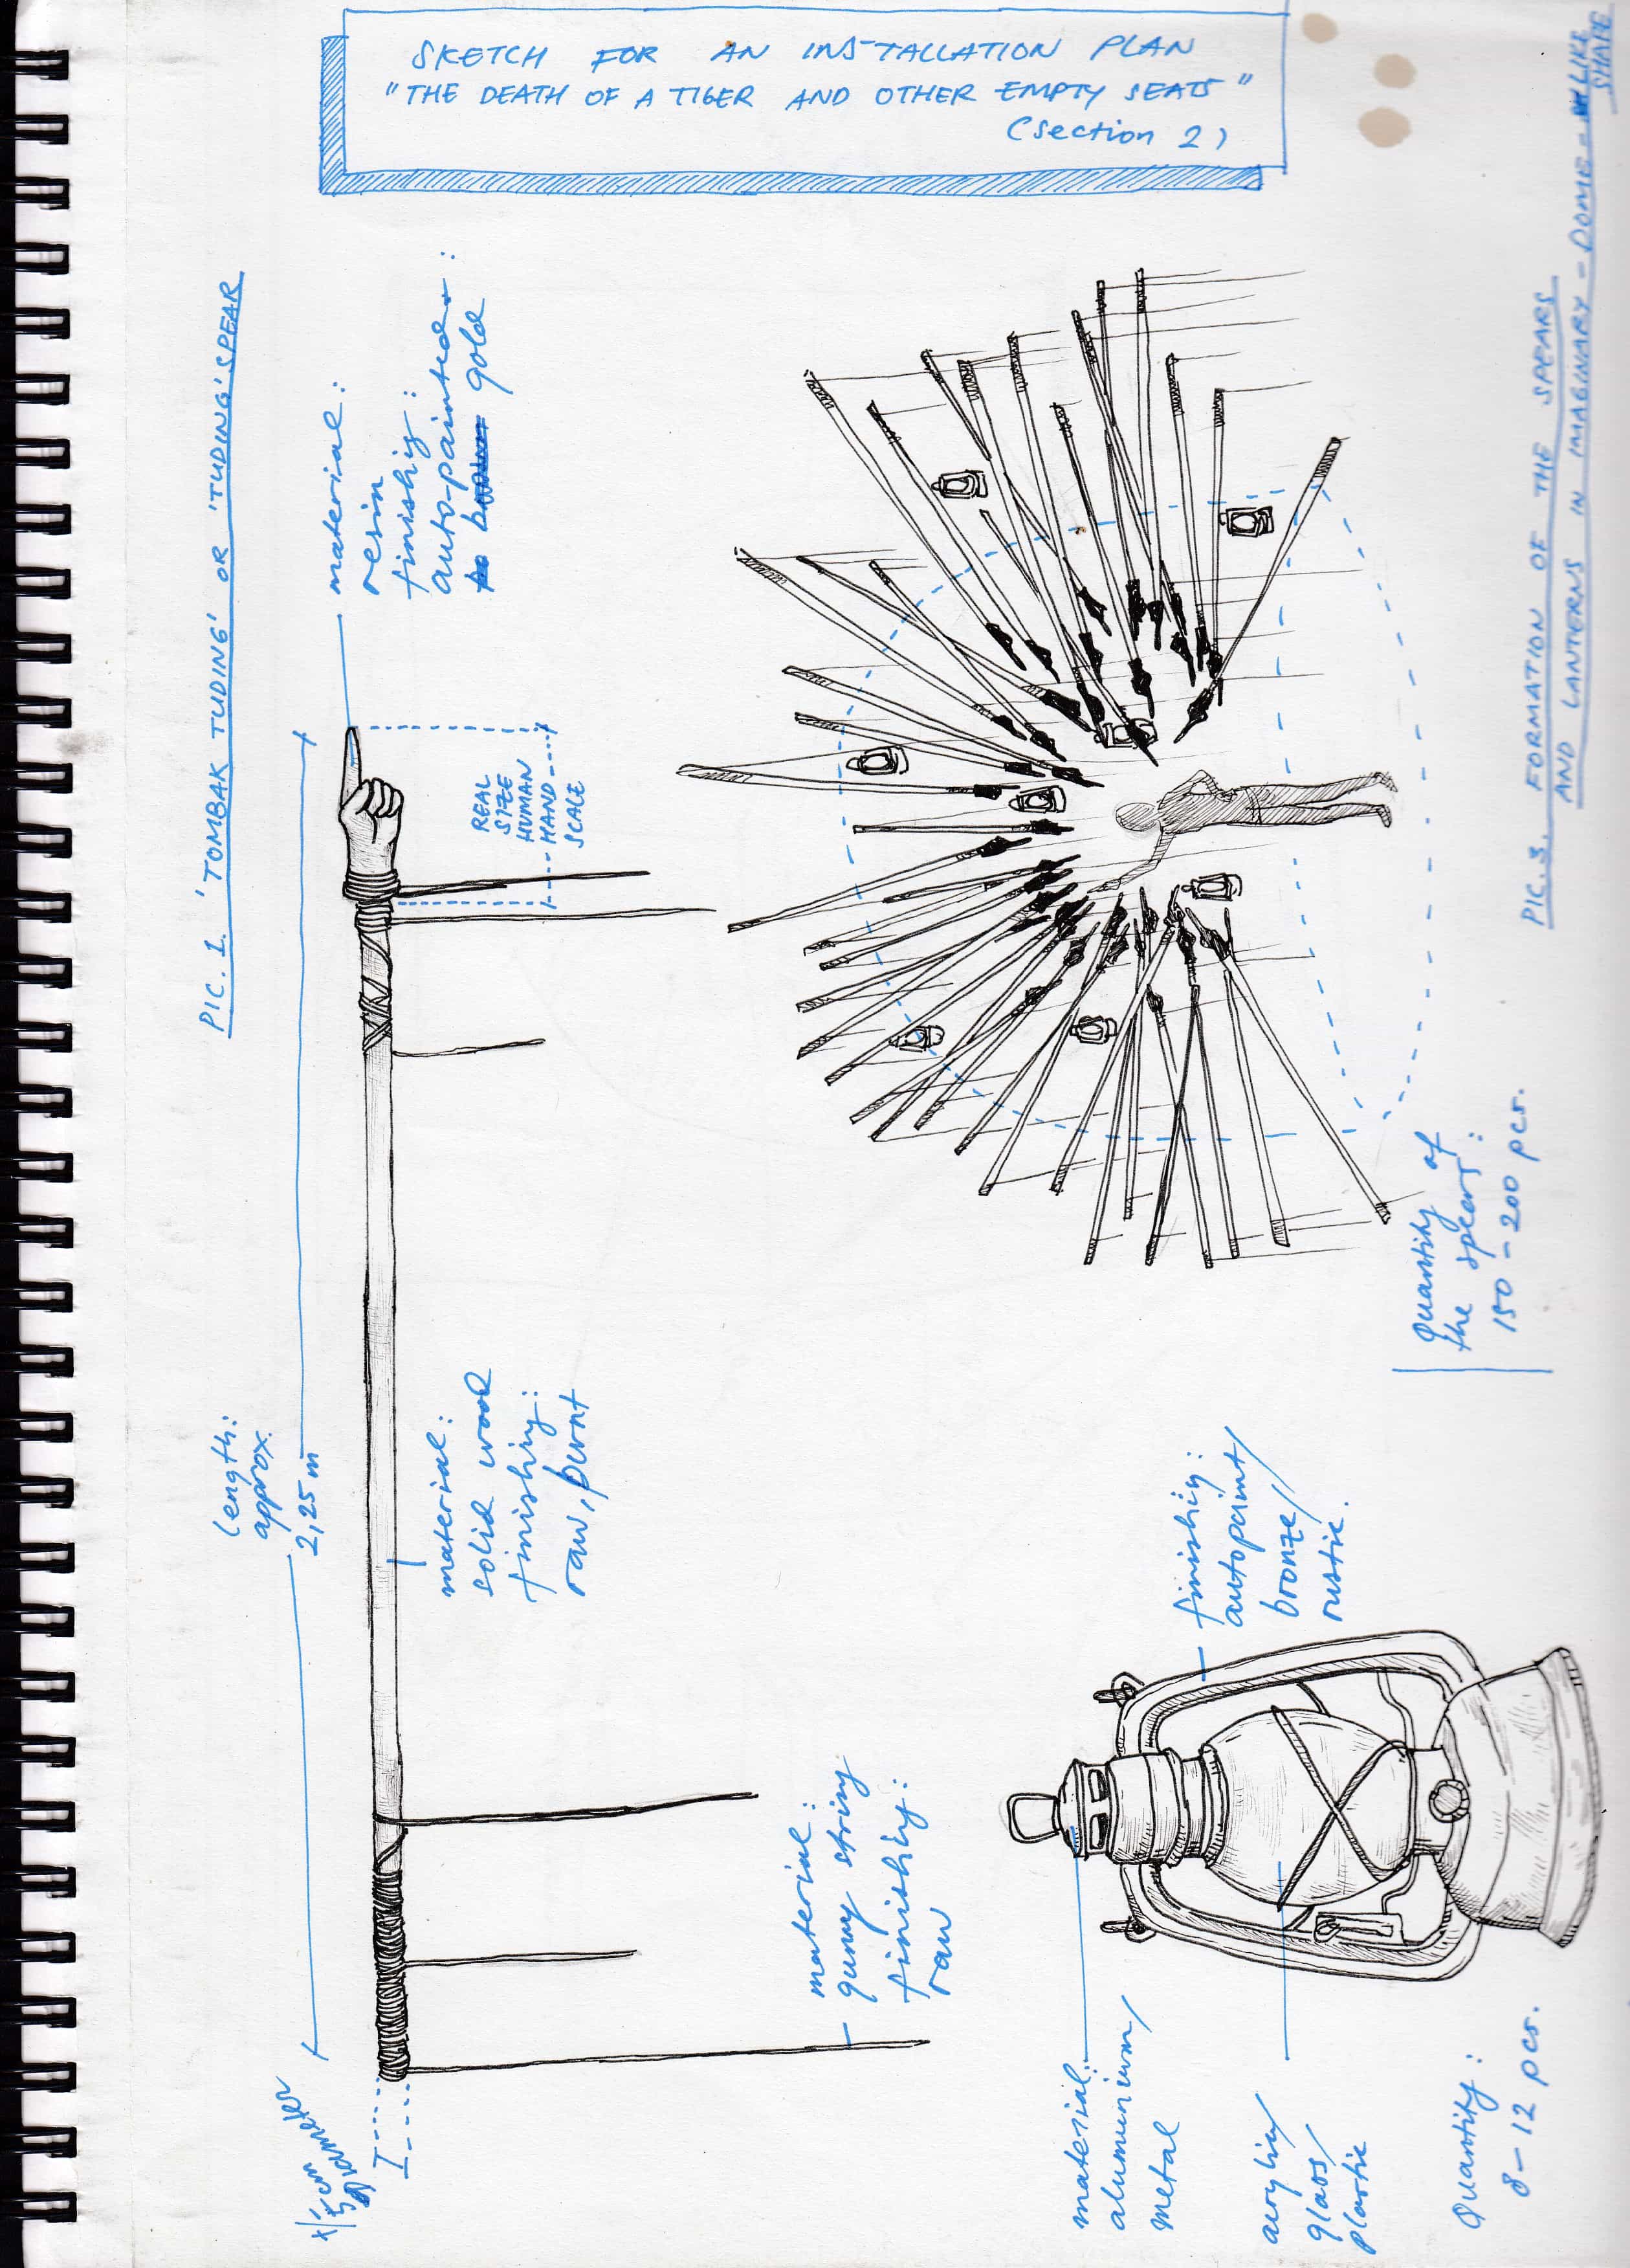 SKETCH FOR AN INSTALLATION PLAN
"THE DEATH OF A TIGER AND OTHER EMPTY SEATS"
(section 2)
PIC. 1. 'TOMBAK TUDING' OR 'TUDING' SPEAR
length:
approx.
2,25 m
material:
resin
finishing:
auto-painted:
gold
REAL
SIZE
HUMAN
HAND
SCALE
material:
solid wood
finishing:
raw, burnt
diameter
material:
gunny string
finishing:
raw
finishing:
autopaint/
bronze/
rustic.
material:
aluminium/
metal
acrylic/
glass/
plastic
Quantity:
8-12 pcs.
Quantity of
the spears:
150-200 pcs.
PIC. 3. FORMATION OF THE SPEARS
AND LANTERNS IN IMAGINARY - DOME - LIKE
SHAPE